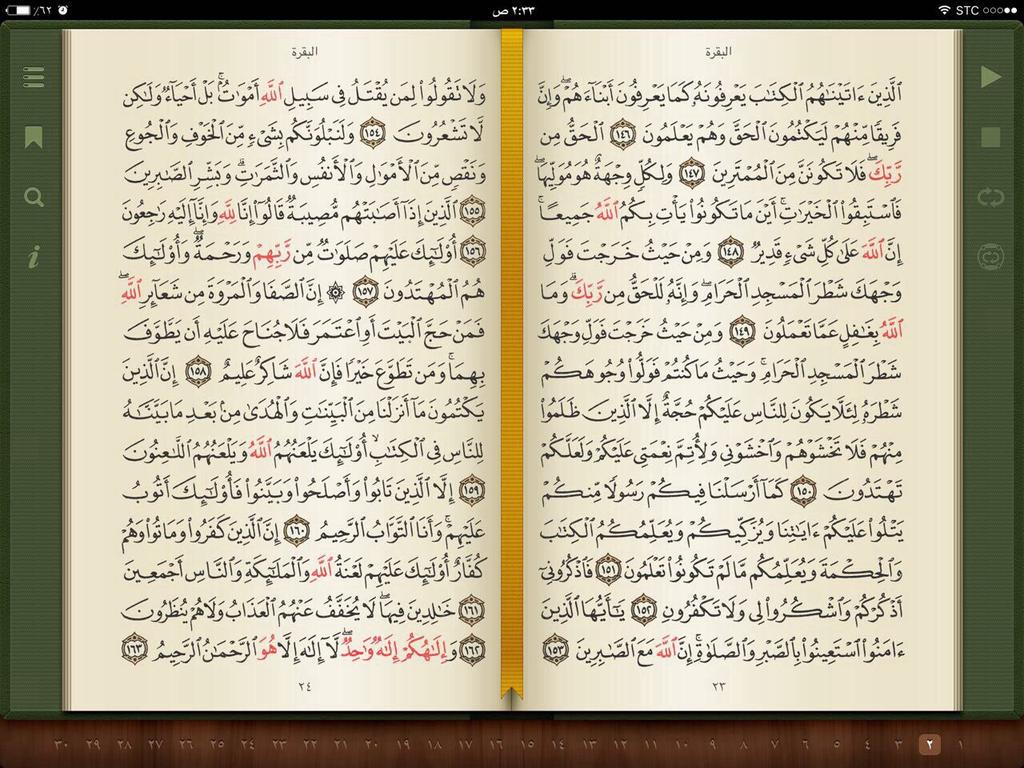 ٪٦٢
٢:٣٣ ص
STC
البقرة
ٱلَّذِينَ ءَاتَيْنَٰهُمُ ٱلْكِتَٰبَ يَعْرِفُونَهُۥ كَمَا يَعْرِفُونَ أَبْنَآءَهُمْ ۖ وَإِنَّ
فَرِيقًا مِّنْهُمْ لَيَكْتُمُونَ ٱلْحَقَّ وَهُمْ يَعْلَمُونَ ١٤٦ ٱلْحَقُّ مِن
رَّبِّكَ ۖ فَلَا تَكُونَنَّ مِنَ ٱلْمُمْتَرِينَ ١٤٧ وَلِكُلٍّ وِجْهَةٌ هُوَ مُوَلِّيهَا ۖ
فَٱسْتَبِقُوا۟ ٱلْخَيْرَٰتِ ۚ أَيْنَ مَا تَكُونُوا۟ يَأْتِ بِكُمُ ٱللَّهُ جَمِيعًا ۚ
إِنَّ ٱللَّهَ عَلَىٰ كُلِّ شَىْءٍ قَدِيرٌ ١٤٨ وَمِنْ حَيْثُ خَرَجْتَ فَوَلِّ
وَجْهَكَ شَطْرَ ٱلْمَسْجِدِ ٱلْحَرَامِ ۖ وَإِنَّهُۥ لَلْحَقُّ مِن رَّبِّكَ ۗ وَمَا
ٱللَّهُ بِغَٰفِلٍ عَمَّا تَعْمَلُونَ ١٤٩ وَمِنْ حَيْثُ خَرَجْتَ فَوَلِّ وَجْهَكَ
شَطْرَ ٱلْمَسْجِدِ ٱلْحَرَامِ ۚ وَحَيْثُ مَا كُنتُمْ فَوَلُّوا۟ وُجُوهَكُمْ
شَطْرَهُۥ لِئَلَّا يَكُونَ لِلنَّاسِ عَلَيْكُمْ حُجَّةٌ إِلَّا ٱلَّذِينَ ظَلَمُوا۟
مِنْهُمْ فَلَا تَخْشَوْهُمْ وَٱخْشَوْنِى وَلِأُتِمَّ نِعْمَتِى عَلَيْكُمْ وَلَعَلَّكُمْ
تَهْتَدُونَ ١٥٠ كَمَآ أَرْسَلْنَا فِيكُمْ رَسُولًا مِّنكُمْ
يَتْلُوا۟ عَلَيْكُمْ ءَايَٰتِنَا وَيُزَكِّيكُمْ وَيُعَلِّمُكُمُ ٱلْكِتَٰبَ
وَٱلْحِكْمَةَ وَيُعَلِّمُكُم مَّا لَمْ تَكُونُوا۟ تَعْلَمُونَ ١٥١ فَٱذْكُرُونِىٓ
أَذْكُرْكُمْ وَٱشْكُرُوا۟ لِى وَلَا تَكْفُرُونِ ١٥٢ يَٰٓأَيُّهَا ٱلَّذِينَ
ءَامَنُوا۟ ٱسْتَعِينُوا۟ بِٱلصَّبْرِ وَٱلصَّلَوٰةِ ۚ إِنَّ ٱللَّهَ مَعَ ٱلصَّٰبِرِينَ ١٥٣
٢٣
البقرة
وَلَا تَقُولُوا۟ لِمَن يُقْتَلُ فِى سَبِيلِ ٱللَّهِ أَمْوَٰتٌۢ ۚ بَلْ أَحْيَآءٌ وَلَٰكِن
لَّا تَشْعُرُونَ ١٥٤ وَلَنَبْلُوَنَّكُم بِشَىْءٍ مِّنَ ٱلْخَوْفِ وَٱلْجُوعِ
وَنَقْصٍ مِّنَ ٱلْأَمْوَٰلِ وَٱلْأَنفُسِ وَٱلثَّمَرَٰتِ ۗ وَبَشِّرِ ٱلصَّٰبِرِينَ
١٥٥ ٱلَّذِينَ إِذَآ أَصَٰبَتْهُم مُّصِيبَةٌ قَالُوٓا۟ إِنَّا لِلَّهِ وَإِنَّآ إِلَيْهِ رَٰجِعُونَ
١٥٦ أُو۟لَٰٓئِكَ عَلَيْهِمْ صَلَوَٰتٌ مِّن رَّبِّهِمْ وَرَحْمَةٌ ۖ وَأُو۟لَٰٓئِكَ
هُمُ ٱلْمُهْتَدُونَ ١٥٧ ۞ إِنَّ ٱلصَّفَا وَٱلْمَرْوَةَ مِن شَعَآئِرِ ٱللَّهِ ۖ
فَمَنْ حَجَّ ٱلْبَيْتَ أَوِ ٱعْتَمَرَ فَلَا جُنَاحَ عَلَيْهِ أَن يَطَّوَّفَ
بِهِمَا ۚ وَمَن تَطَوَّعَ خَيْرًا فَإِنَّ ٱللَّهَ شَاكِرٌ عَلِيمٌ ١٥٨ إِنَّ ٱلَّذِينَ
يَكْتُمُونَ مَآ أَنزَلْنَا مِنَ ٱلْبَيِّنَٰتِ وَٱلْهُدَىٰ مِنۢ بَعْدِ مَا بَيَّنَّٰهُ
لِلنَّاسِ فِى ٱلْكِتَٰبِ ۙ أُو۟لَٰٓئِكَ يَلْعَنُهُمُ ٱللَّهُ وَيَلْعَنُهُمُ ٱللَّٰعِنُونَ
١٥٩ إِلَّا ٱلَّذِينَ تَابُوا۟ وَأَصْلَحُوا۟ وَبَيَّنُوا۟ فَأُو۟لَٰٓئِكَ أَتُوبُ
عَلَيْهِمْ ۚ وَأَنَا ٱلتَّوَّابُ ٱلرَّحِيمُ ١٦٠ إِنَّ ٱلَّذِينَ كَفَرُوا۟ وَمَاتُوا۟ وَهُمْ
كُفَّارٌ أُو۟لَٰٓئِكَ عَلَيْهِمْ لَعْنَةُ ٱللَّهِ وَٱلْمَلَٰٓئِكَةِ وَٱلنَّاسِ أَجْمَعِينَ
١٦١ خَٰلِدِينَ فِيهَا ۖ لَا يُخَفَّفُ عَنْهُمُ ٱلْعَذَابُ وَلَا هُمْ يُنظَرُونَ
١٦٢ وَإِلَٰهُكُمْ إِلَٰهٌ وَٰحِدٌ ۖ لَّآ إِلَٰهَ إِلَّا هُوَ ٱلرَّحْمَٰنُ ٱلرَّحِيمُ ١٦٣
٢٤
١ ٢ ٣ ٤ ٥ ٦ ٧ ٨ ٩ ١٠ ١١ ١٢ ١٣ ١٤ ١٥ ١٦ ١٧ ١٨ ١٩ ٢٠ ٢١ ٢٢ ٢٣ ٢٤ ٢٥ ٢٦ ٢٧ ٢٨ ٢٩ ٣٠